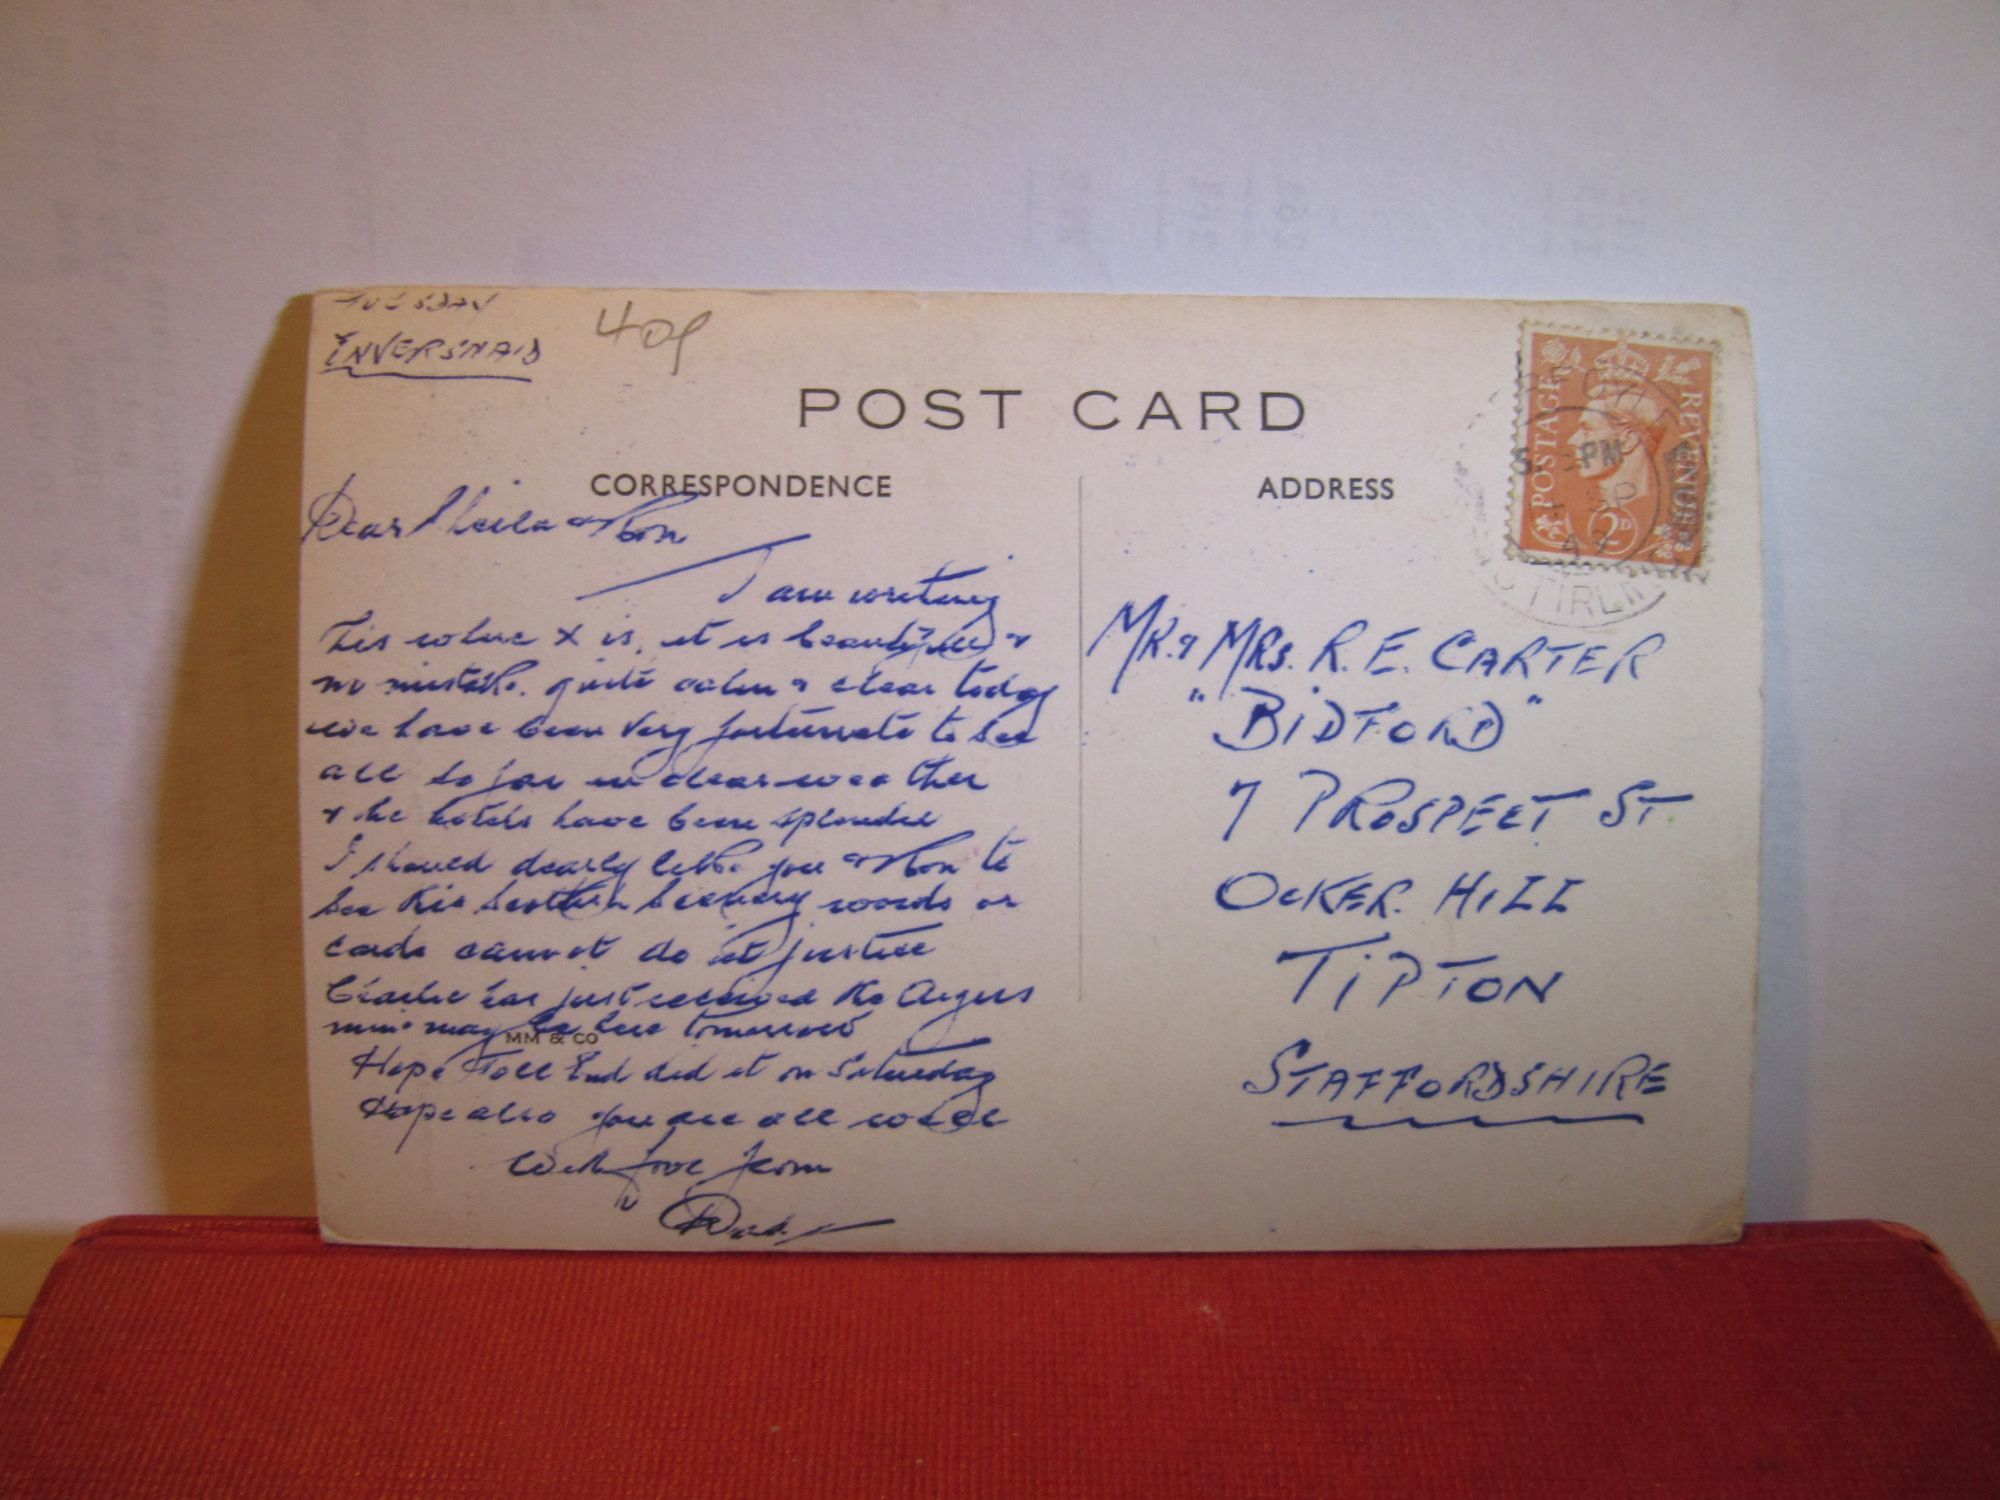 TUESDAY
INVERSNAID
40p
POST CARD
CORRESPONDENCE
ADDRESS
POSTAGE
REVENUE
2D
PM
STIRLIN
Dear Sheila & Ron
I am writing
this where X is, it is beautiful &
no mistake. quite calm & clear today
we have been very fortunate to see
all so far in clear weather
& the hotels have been splendid
I should dearly like you & Ron to
see this Scottish Scenery words or
cards cannot do it justice
Charlie has just received the Argus
mine may be here tomorrow
MM & CO
Hope Toll End did it on Saturday
Hope also you are all well
With Love from
Dad
MR. & MRS. R. E. CARTER
"BIDFORD"
7 PROSPECT ST
OCKER HILL
TIPTON
STAFFORDSHIRE